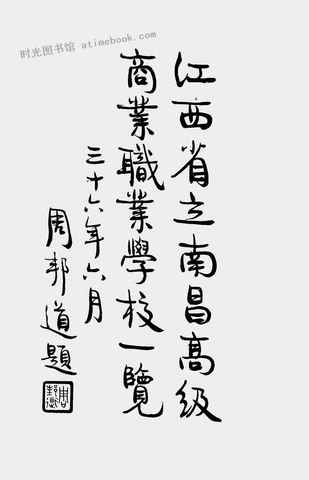 时光图书馆 atimebook.com
江西省立南昌高级
商業職業學校一覽
三十六年六月
周邦道題